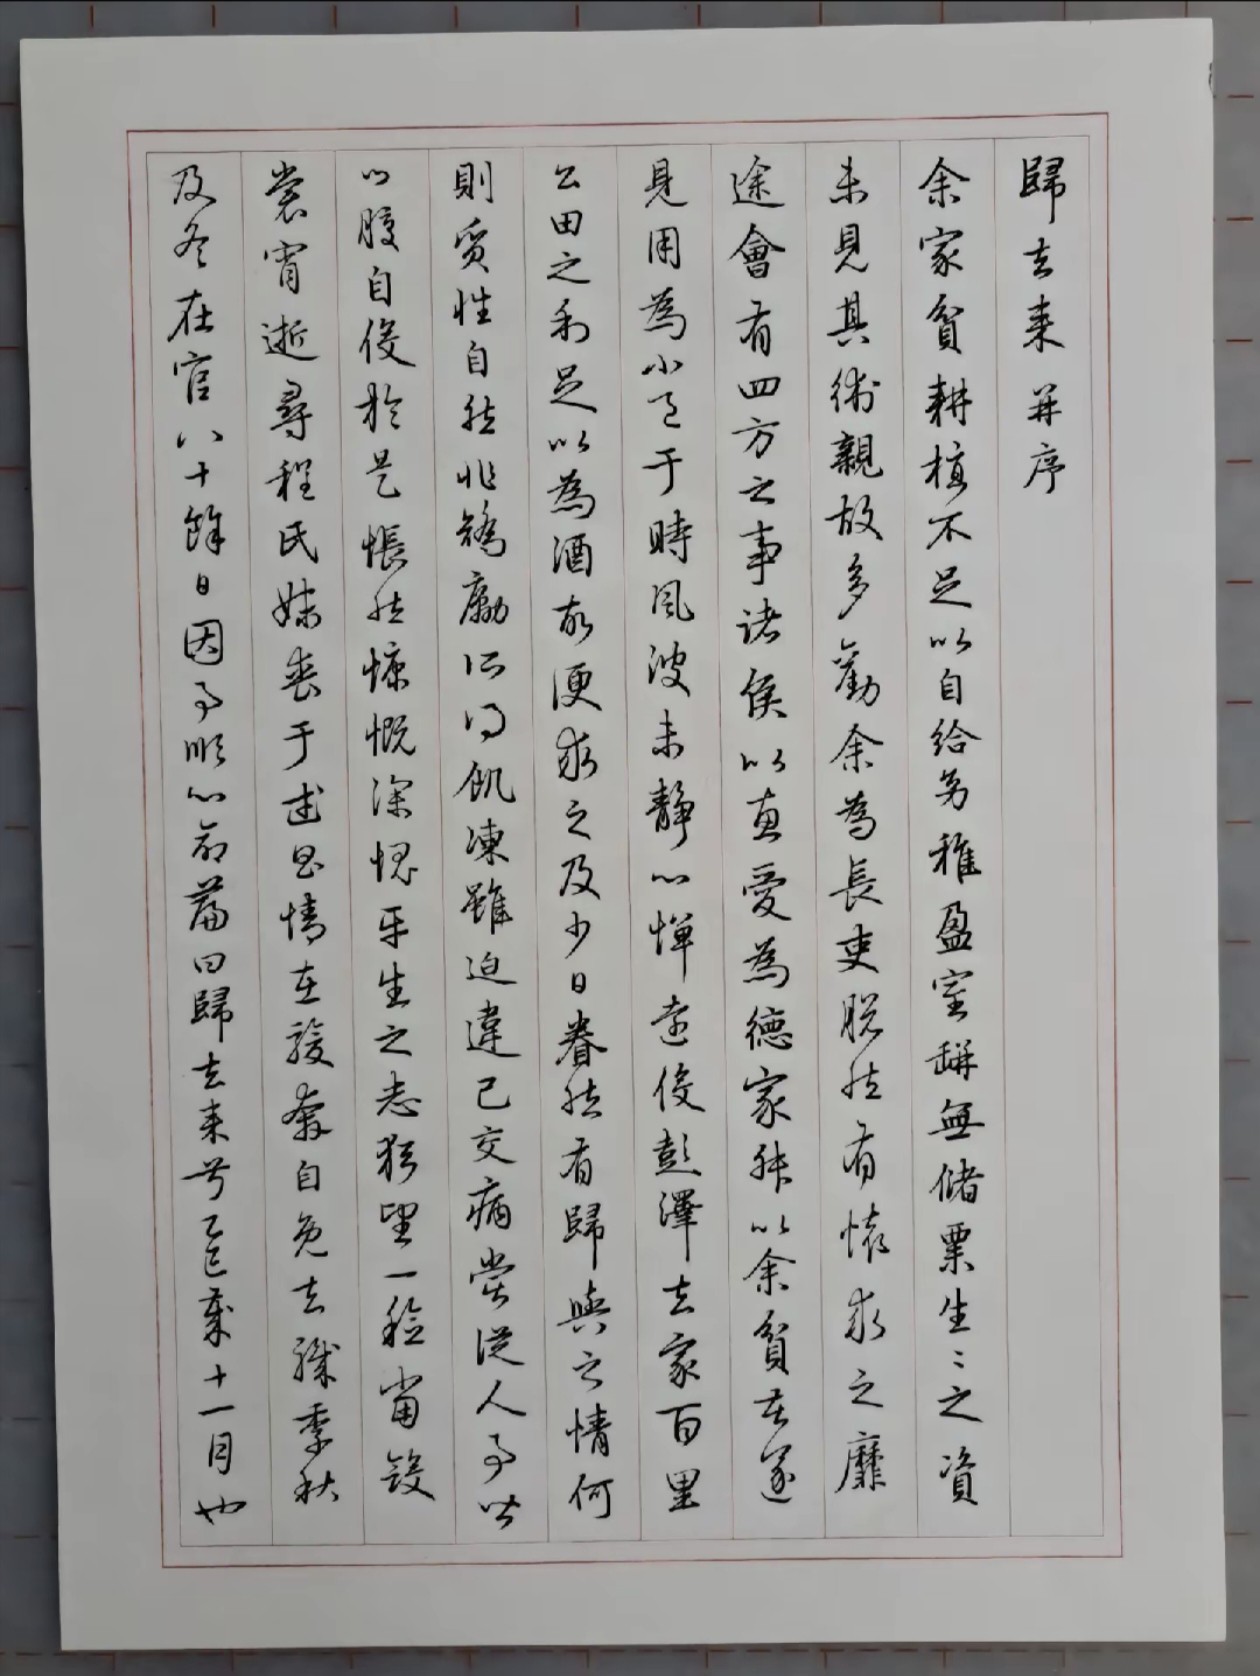 歸去来并序
余家貧耕植不足以自給幼稚盈室缾無儲粟生〻之資
未見其術親故多勸余為長吏脱然有懷求之靡
途會有四方之事諸侯以惠愛為德家叔以余貧苦遂
見用為小邑于時風波未静心憚遠役彭澤去家百里
公田之利足以為酒故便求之及少日眷然有歸與之情何
則質性自然非矯勵所得飢凍雖迫違己交病嘗從人事皆
口腹自役於是悵然慷慨深愧平生之志猶望一稔當斂
裳宵逝尋程氏妹喪于武昌情在駿奔自免去職季秋
及冬在官八十餘日因事順心命篇曰歸去来兮乙巳歲十一月也